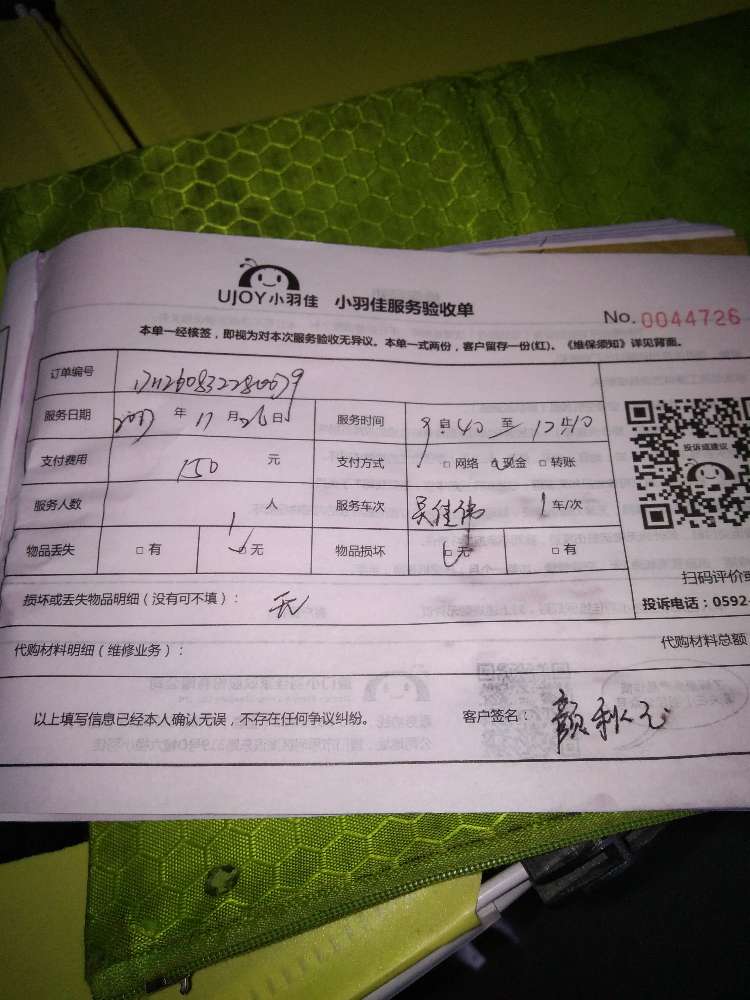 UJOY小羽佳 小羽佳服务验收单 No. 0044726
本单一经核签，即视为对本次服务验收无异议。本单一式两份，客户留存一份(红)。《维保须知》详见背面。
订单编号
服务日期 2017 年 11 月 26 日 服务时间 9 自 40 至 12:40
支付费用 150 元 支付方式 □ 网络 □ 现金 □ 转账
服务人数 1 人 服务车次 吴佳伟 1 车/次
物品丢失 □ 有 □ 无 物品损坏 □ 无 □ 有
投诉或建议
扫码评价
损坏或丢失物品明细（没有可不填）： 无
投诉电话：0592-
代购材料明细（维修业务）： 代购材料总额
以上填写信息已经本人确认无误，不存在任何争议纠纷。 客户签名：